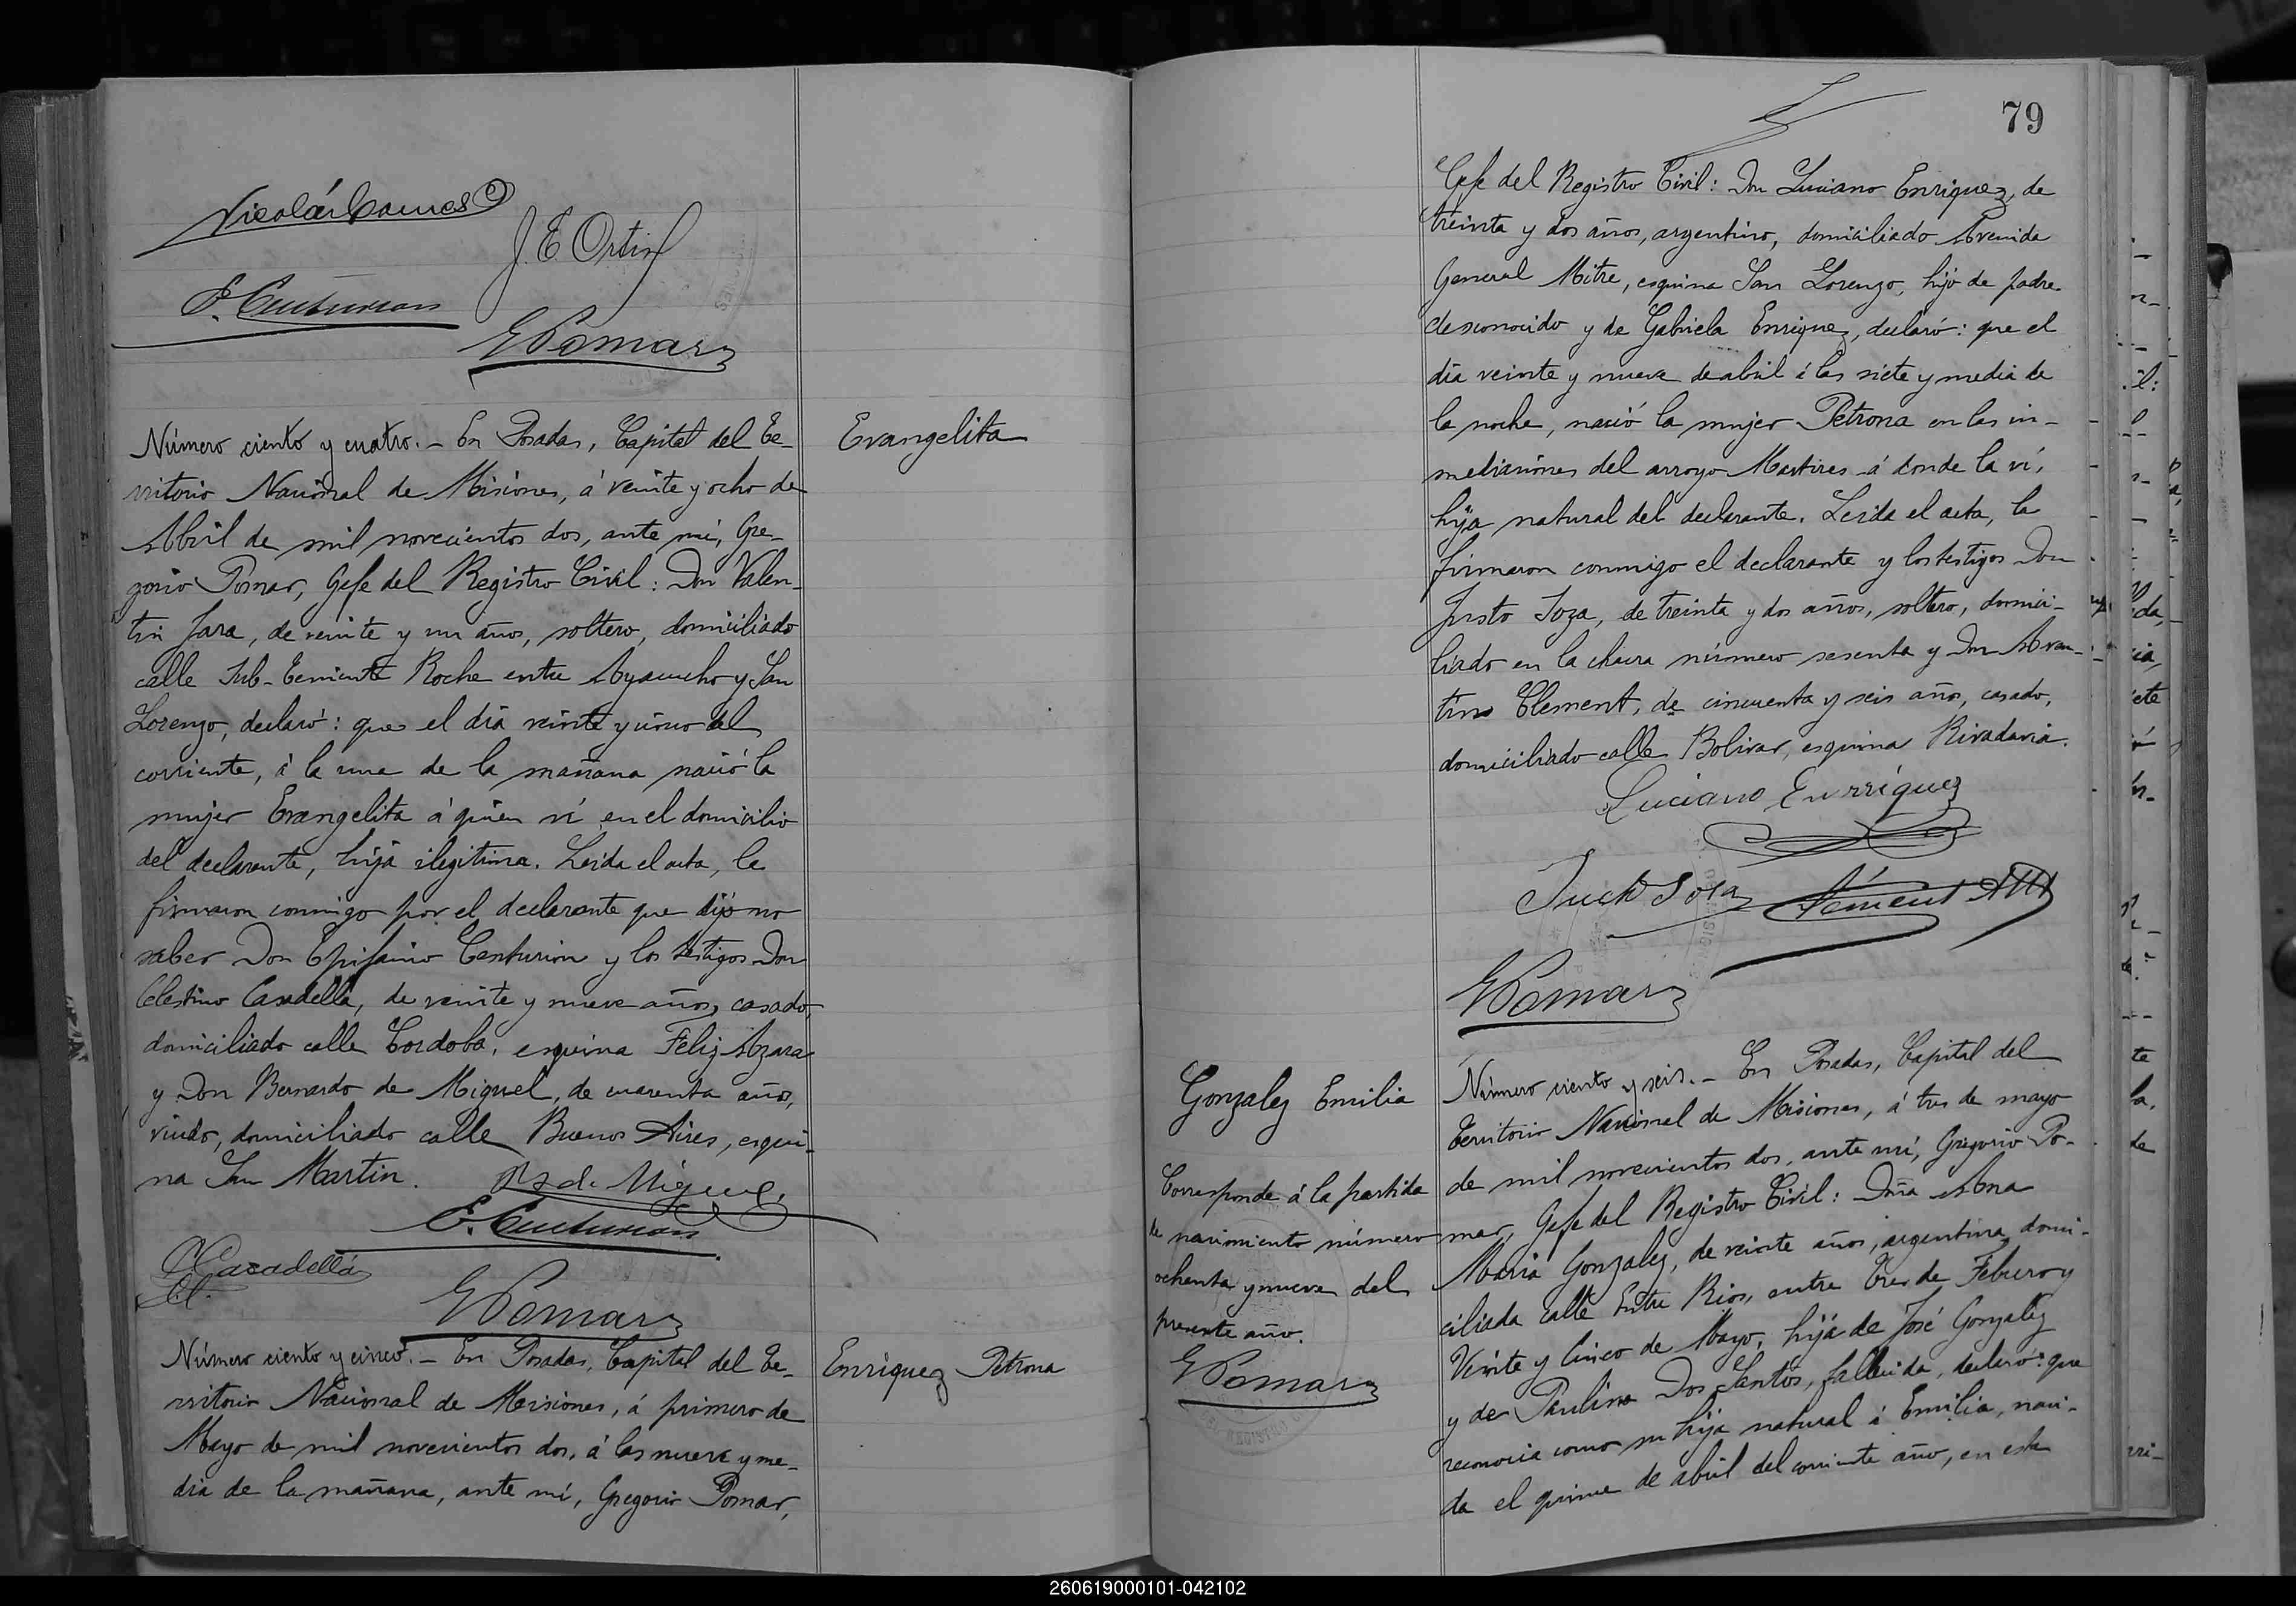 Nicolás Comas
J. E. Ortiz
E. Centurion
G Pomar
Número ciento y cuatro.- En Posadas, Capital del Te-
rritorio Nacional de Misiones, á veinte y ocho de
Abril de mil novecientos dos, ante mí, Gre-
gorio Pomar, Gefe del Registro Civil: Don Valen-
tin Jara, de veinte y un años, soltero, domiciliado
calle Sub-Teniente Roche entre Ayacucho y San
Lorenzo, declaró: que el dia veinte y cinco del
corriente, á la una de la mañana nació la
mujer Evangelita á quien ví en el domicilio
del declarante, hija ilegitima. Leida el acta, la
firmaron conmigo por el declarante que dijo no
saber Don Epifanio Centurion y los testigos Don
Celestino Casadella, de veinte y nueve años, casado,
domiciliado calle Cordoba, esquina Feliz Azara
y Don Bernardo de Miguel, de cuarenta años,
viudo, domiciliado calle Buenos Aires, esqui-
na San Martin.
B. de Miguel
E. Centurion
C Casadellá
G Pomar
Evangelita
Número ciento y cinco.- En Posadas, Capital del Te-
rritorio Nacional de Misiones, á primero de
Mayo de mil novecientos dos, á las nueve y me-
dia de la mañana, ante mí, Gregorio Pomar,
Enriquez Petrona
79
Gefe del Registro Civil: Don Luciano Enriquez, de
treinta y dos años, argentino, domiciliado Avenida
General Mitre, esquina San Lorenzo, hijo de padre
desconocido y de Gabriela Enriquez, declaró: que el
dia veinte y nueve de abril á las siete y media de
la noche, nació la mujer Petrona en las in-
mediaciones del arroyo Martires á donde la ví,
hija natural del declarante. Leida el acta, la
firmaron conmigo el declarante y los testigos Don
Justo Soza, de treinta y dos años, soltero, domici-
liado en la chacra número sesenta y Don Avan-
tino Clement, de cincuenta y seis año, casado,
domiciliado calle Bolivar, esquina Rivadavia.
Luciano Enrriquez
Justo Sosa
Clement
G Pomar
Gonzalez Emilia
Corresponde á la partida
de nacimiento número
ochenta y nueve del
presente año.
G Pomar
Número ciento y seis.- En Posadas, Capital del
Territorio Nacional de Misiones, á tres de mayo
de mil novecientos dos, ante mí, Gregorio Po-
mar, Gefe del Registro Civil: Doña Ana
Maria Gonzalez, de veinte años, argentina, domi-
ciliada calle Entre Rios, entre Tres de Febrero y
Veinte y Cinco de Mayo, hija de José Gonzalez
y de Paulina Dos Santos, fallecida, declaró: que
reconocia como su hija natural á Emilia, naci-
da el quince de abril del corriente año, en esta
260619000101-042102